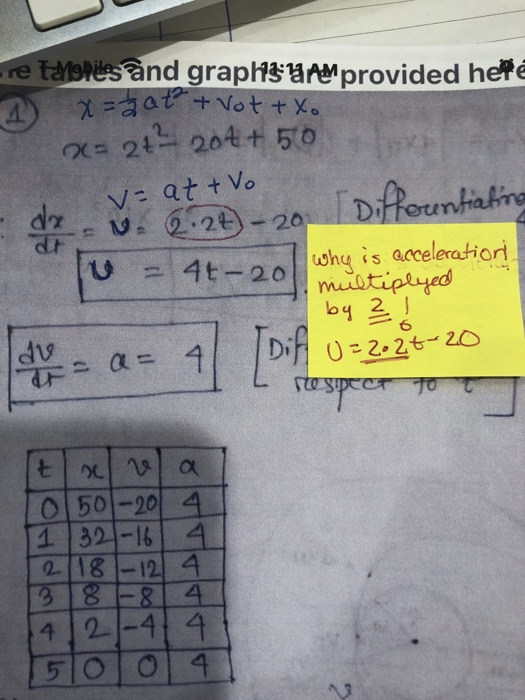 T-Mobile 11:11 AM
he tables and graphs are provided here
1
x = ½at² + v₀t + x₀
x = 2t² - 20t + 50
v = at + v₀
dx/dt = v = 2·2t - 20 [Differentiating
v = 4t - 20
why is acceleration
multiplyed
by 2 !
v = 2·2t - 20
dv/dt = a = 4 [Dif
respect to t ]
t x v a
0 50 -20 4
1 32 -16 4
2 18 -12 4
3 8 -8 4
4 2 -4 4
5 0 0 4
v